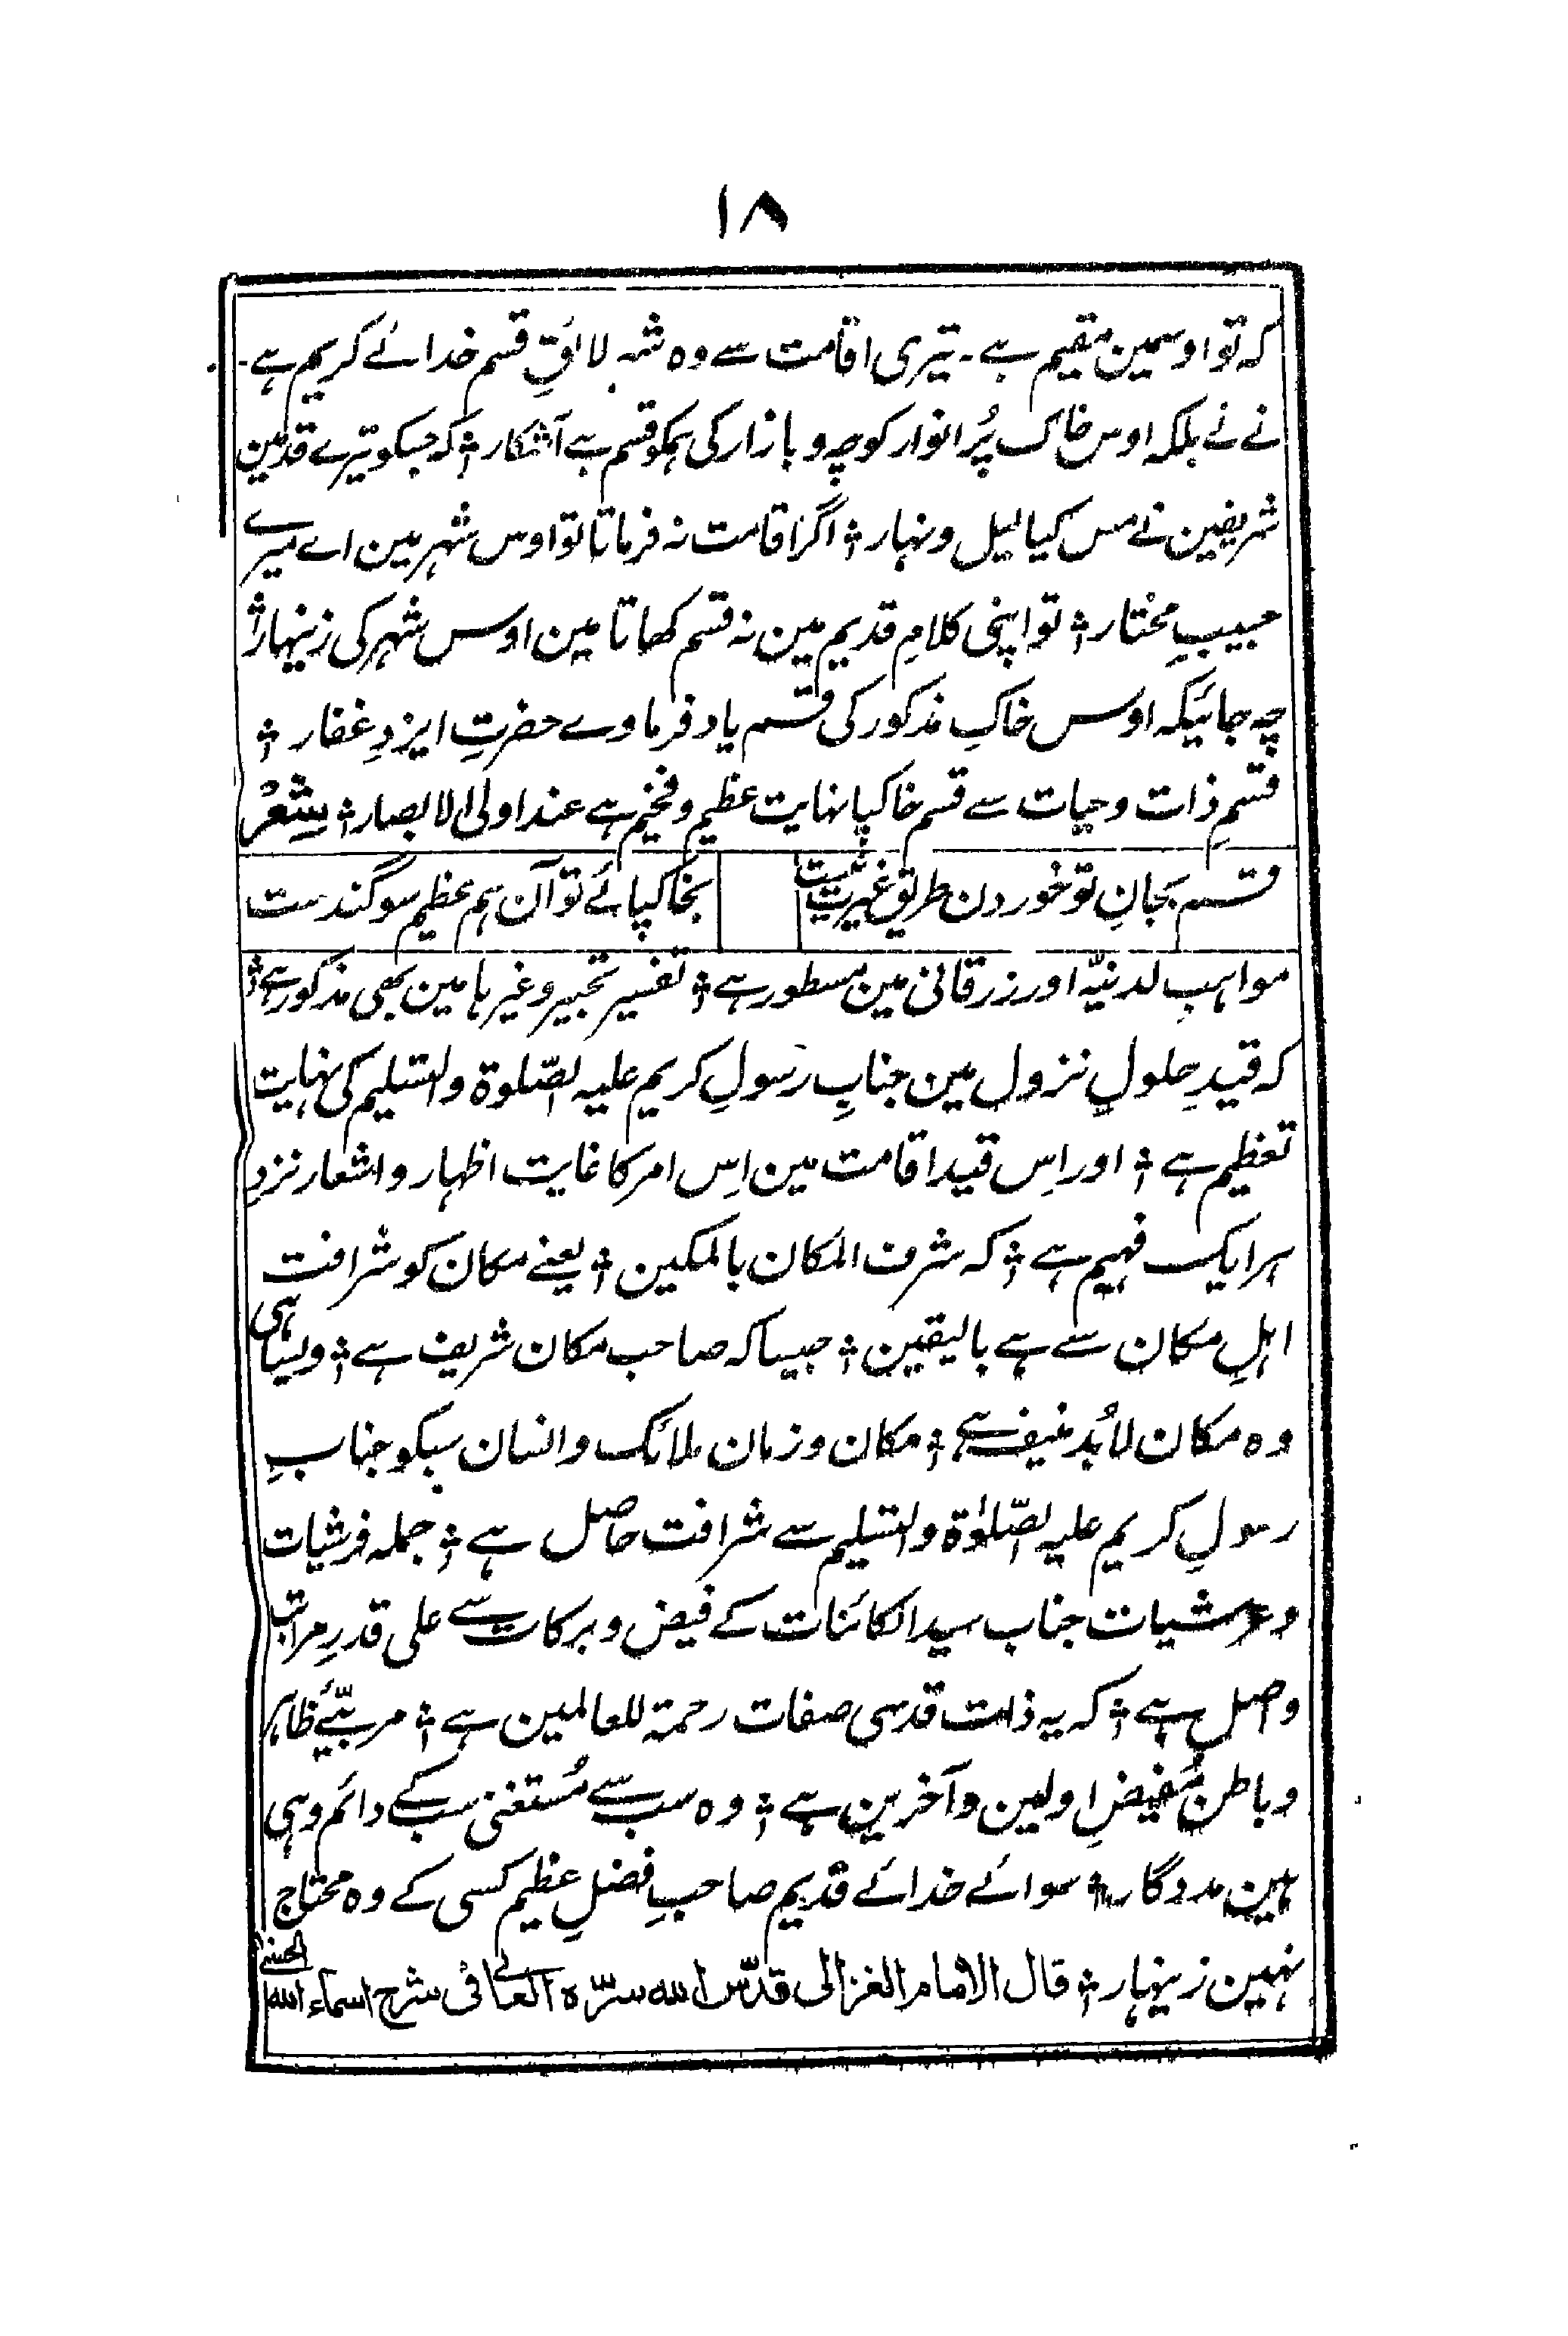 ۱۸
کہ تو اوسمین مقیم ہے۔ تیری اقامت سے وہ شہر لائقِ قسم خدائے کریم ہے۔
نے نے بلکہ اوس خاک پُر انوار کوچہ و بازار کی ہمکو قسم ہے آشکار؞ کہ جسکو تیرے قدمین
شریفین نے مس کیا لیل و نہار؞ اگر اقامت نہ فرماتا تو اوس شہر مین اے میرے
حبیبِ مختار؞ تو اپنی کلامِ قدیم مین نہ قسم کھاتا مین اوس شہر کی زینہار؞
چہ جائیکہ اوس خاکِ مذکور کی قسم یاد فرماوے حضرتِ ایزدِ غفار؞
قسمِ ذات و حیات سے قسم خاکپا نہایت عظیم و فخیم ہے عند اولی الابصار؞ شِعْر
قسم بجانِ تو خوردن طریق غیریت نیست
بخاکپائے تو آن ہم عظیم سوگندست
مواہب لدنیّہ اور زرقانی مین مسطور ہے؞ تفسیر تحبیر وغیرہا مین بھی مذکور ہے؞
کہ قیدِ حلولِ نزول مین جنابِ رسولِ کریم علیہ الصّلوۃ والتسلیم کی نہایت
تعظیم ہے؞ اور اِس قید اقامت مین اِس امر کا غایت اظہار و اشعار نزدِ
ہر ایک فہیم ہے؞ کہ شرف المکان بالمکین؞ یعنے مکان کو شرافت
اہلِ مکان سے ہے بالیقین؞ جیسا کہ صاحب مکان شریف ہے؞ ویسا ہی
وہ مکان لابُد منیف ہے؞ مکان و زمان ملائک و انسان سبکو جنابِ
رسولِ کریم علیہ الصّلوٰۃ والتسلیم سے شرافت حاصل ہے؞ جملہ فرشیات
و عرشیات جناب سید الکائنات کے فیض و برکات سے علی قدرِ مراتب
واصل ہے؞ کہ یہ ذات قدسی صفات رحمۃ للعالمین ہے؞ مربّیِٔ ظاہر
و باطن مُفیضِ اولین و آخرین ہے؞ وہ سب سے مُستغنی سب کے دائم وہی
ہین مددگار؞ سوائے خدائے قدیم صاحبِ فضلِ عظیم کسی کے وہ محتاج
نہین زینہار؞ قال الامام الغزالی قدّس اللہ سرّہ العالی فی شرح اسماء اللہ الحسنی